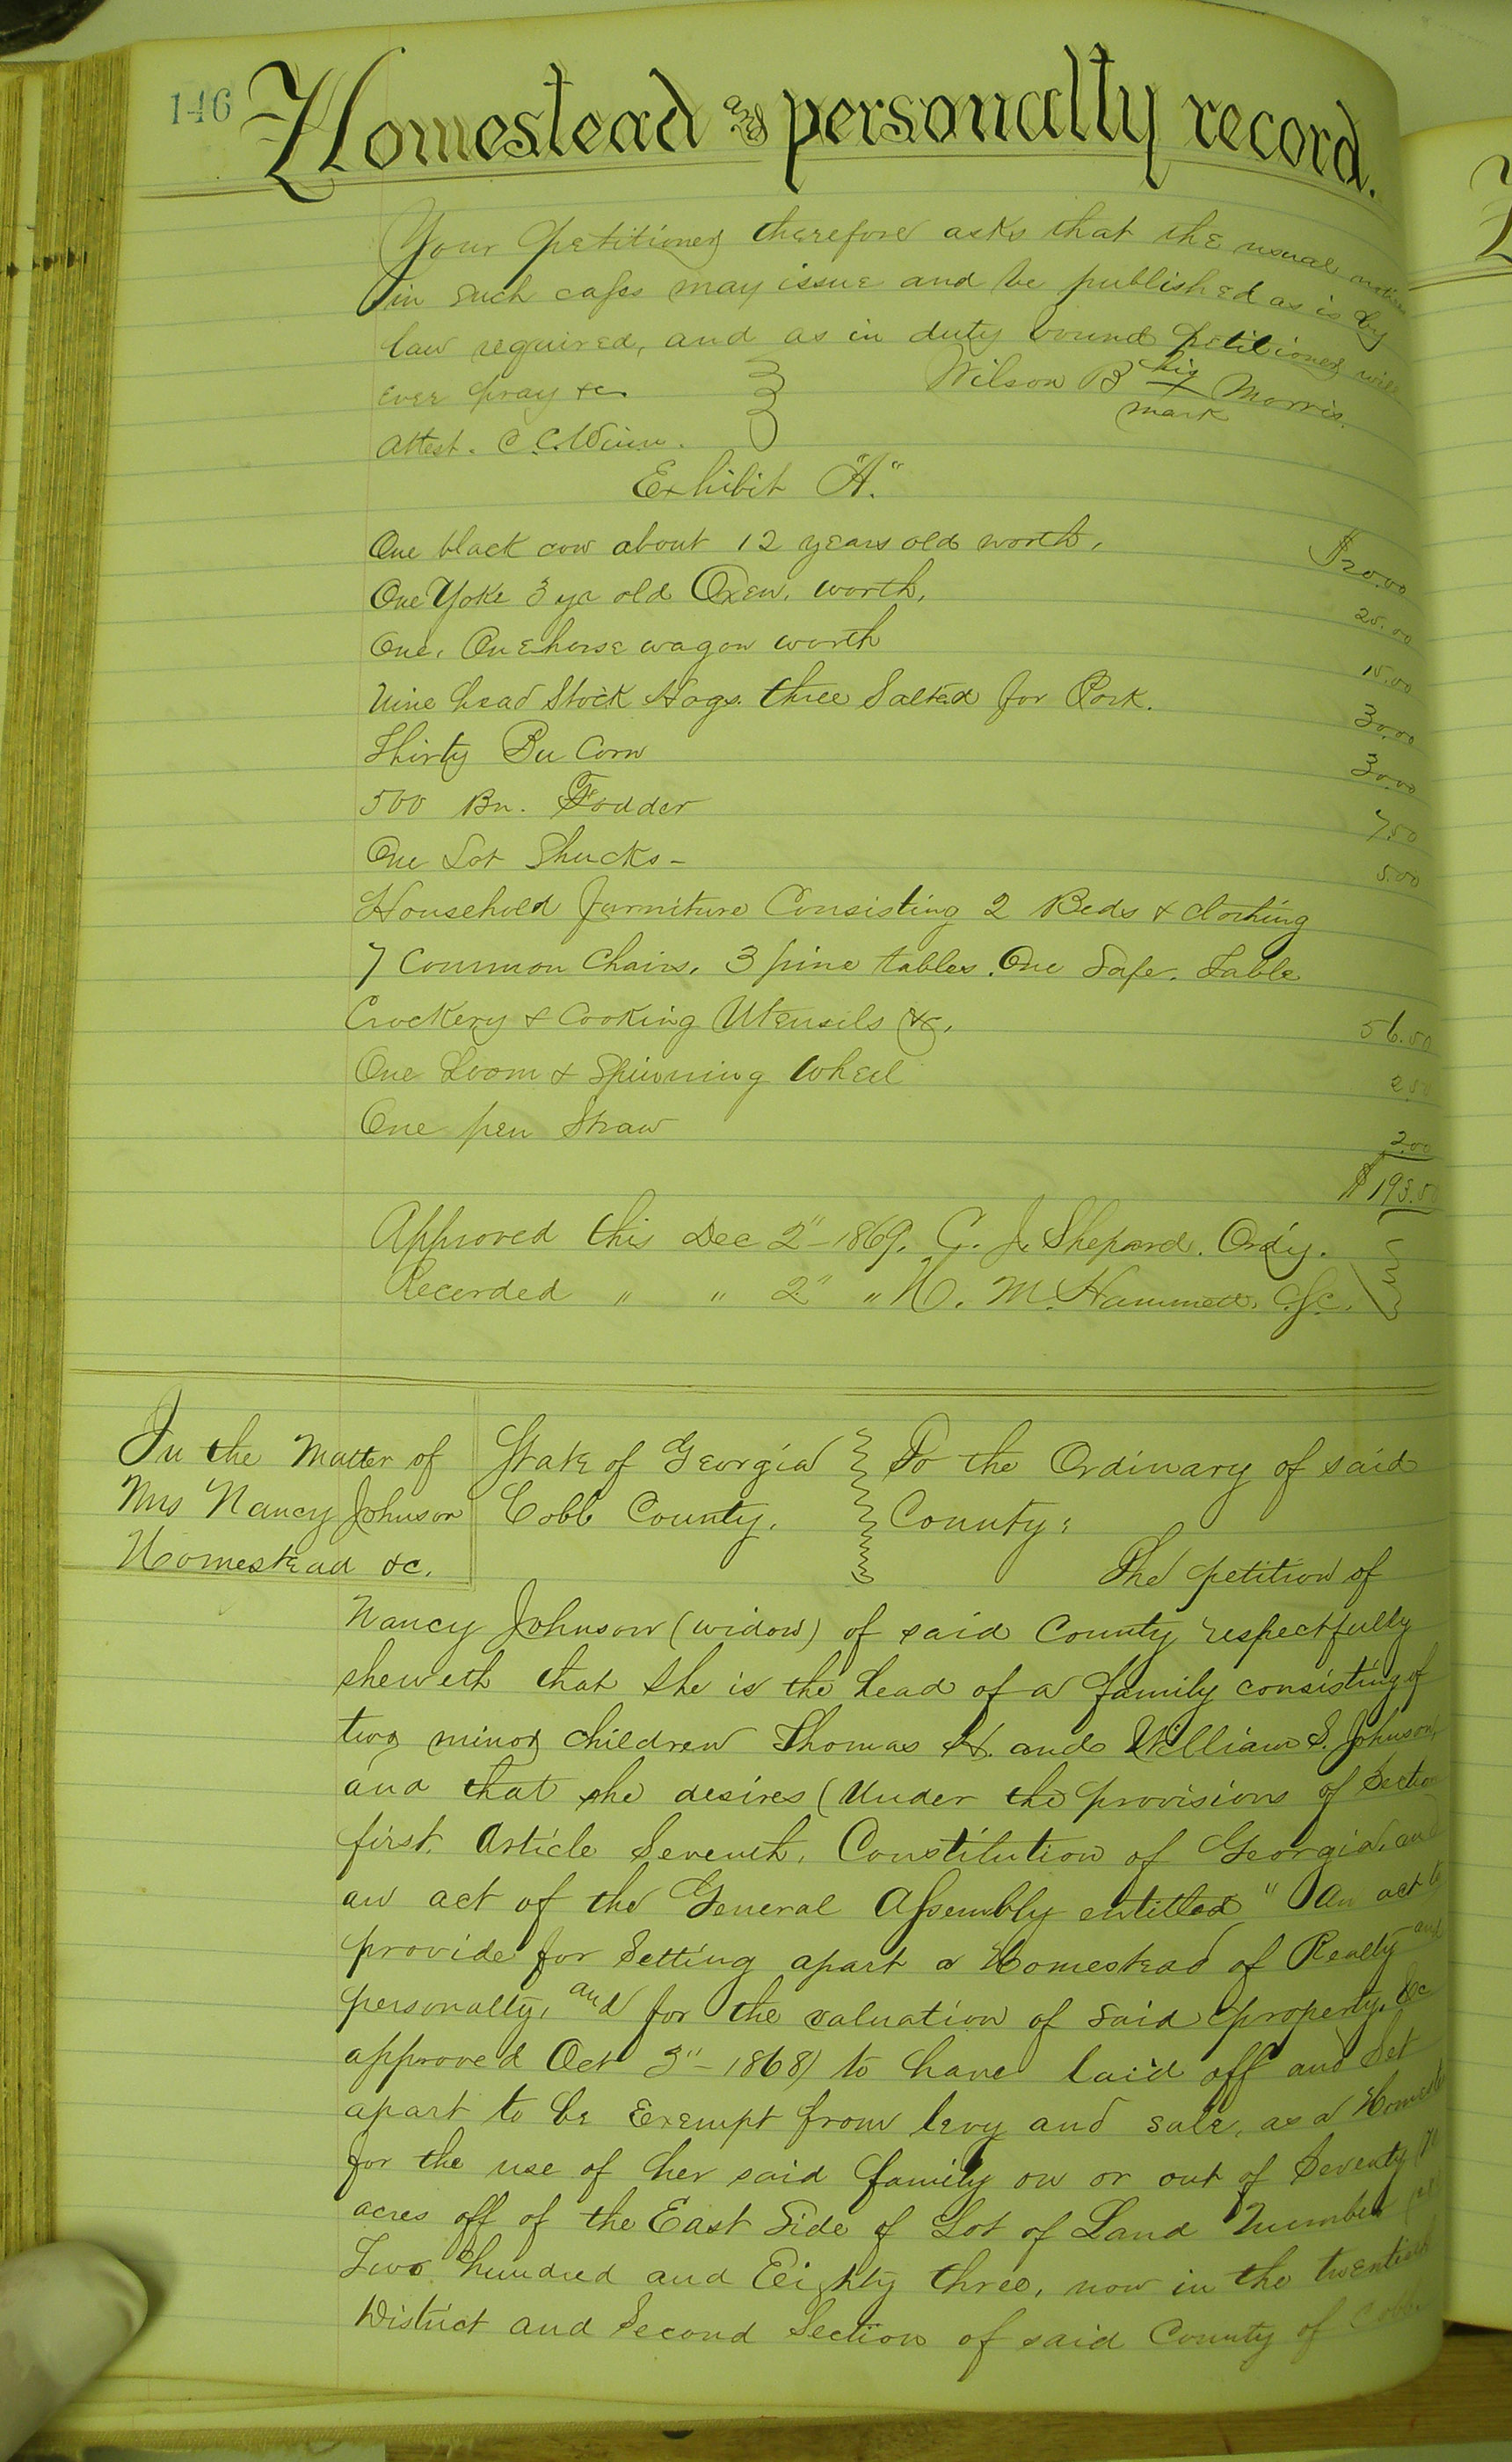 146 Homestead and personalty record.
Your petitioner therefore asks that the usual notice
in such cases may issue and be published as is by
law required, and as in duty bound petitioner will
ever pray &c Wilson B his X mark Morris.
Attest. C. C. Winn.
Exhibit "A."
One black cow about 12 years old worth, $20.00
One Yoke 3 yr old Oxen, worth, 25.00
One, One horse wagon worth 15.00
Nine head Stock Hogs. three Salted for Pork. 30.00
Thirty Bu Corn 30.00
500 Bn. Fodder 7.50
One Lot Shucks - 5.00
Household furniture Consisting 2 Beds & clothing
7 Common Chairs, 3 pine tables. One Safe. Table
Crockery & Cooking Utensils &c, 56.50
One Loom & Spinning Wheel 2.50
One pen Straw 2.00
$193.50
Approved this Dec 2" - 1869. C. J. Shepard. Ordy.
Recorded " " 2" " M. Hammett, C.S.C.
In the Matter of
Mrs Nancy Johnson
Homestead &c.
State of Georgia
Cobb County.
To the Ordinary of said
County:
The petition of
Nancy Johnson (widow) of said County respectfully
sheweth that she is the head of a family consisting of
two minor children Thomas H. and William S. Johnson,
and that she desires (Under the provisions of Section
first. Article Seventh, Constitution of Georgia, and
an act of the General Assembly entitled "An act to
provide for Setting apart a Homestead of Realty and
personalty, and for the valuation of said property, &c
approved Oct 3" - 1868) to have laid off and Set
apart to be Exempt from levy and sale, as a Homestead
for the use of her said family on or out of Seventy
acres off of the East Side of Lot of Land Number
Two hundred and Eighty three, now in the twentieth
District and Second Section of said County of Cobb